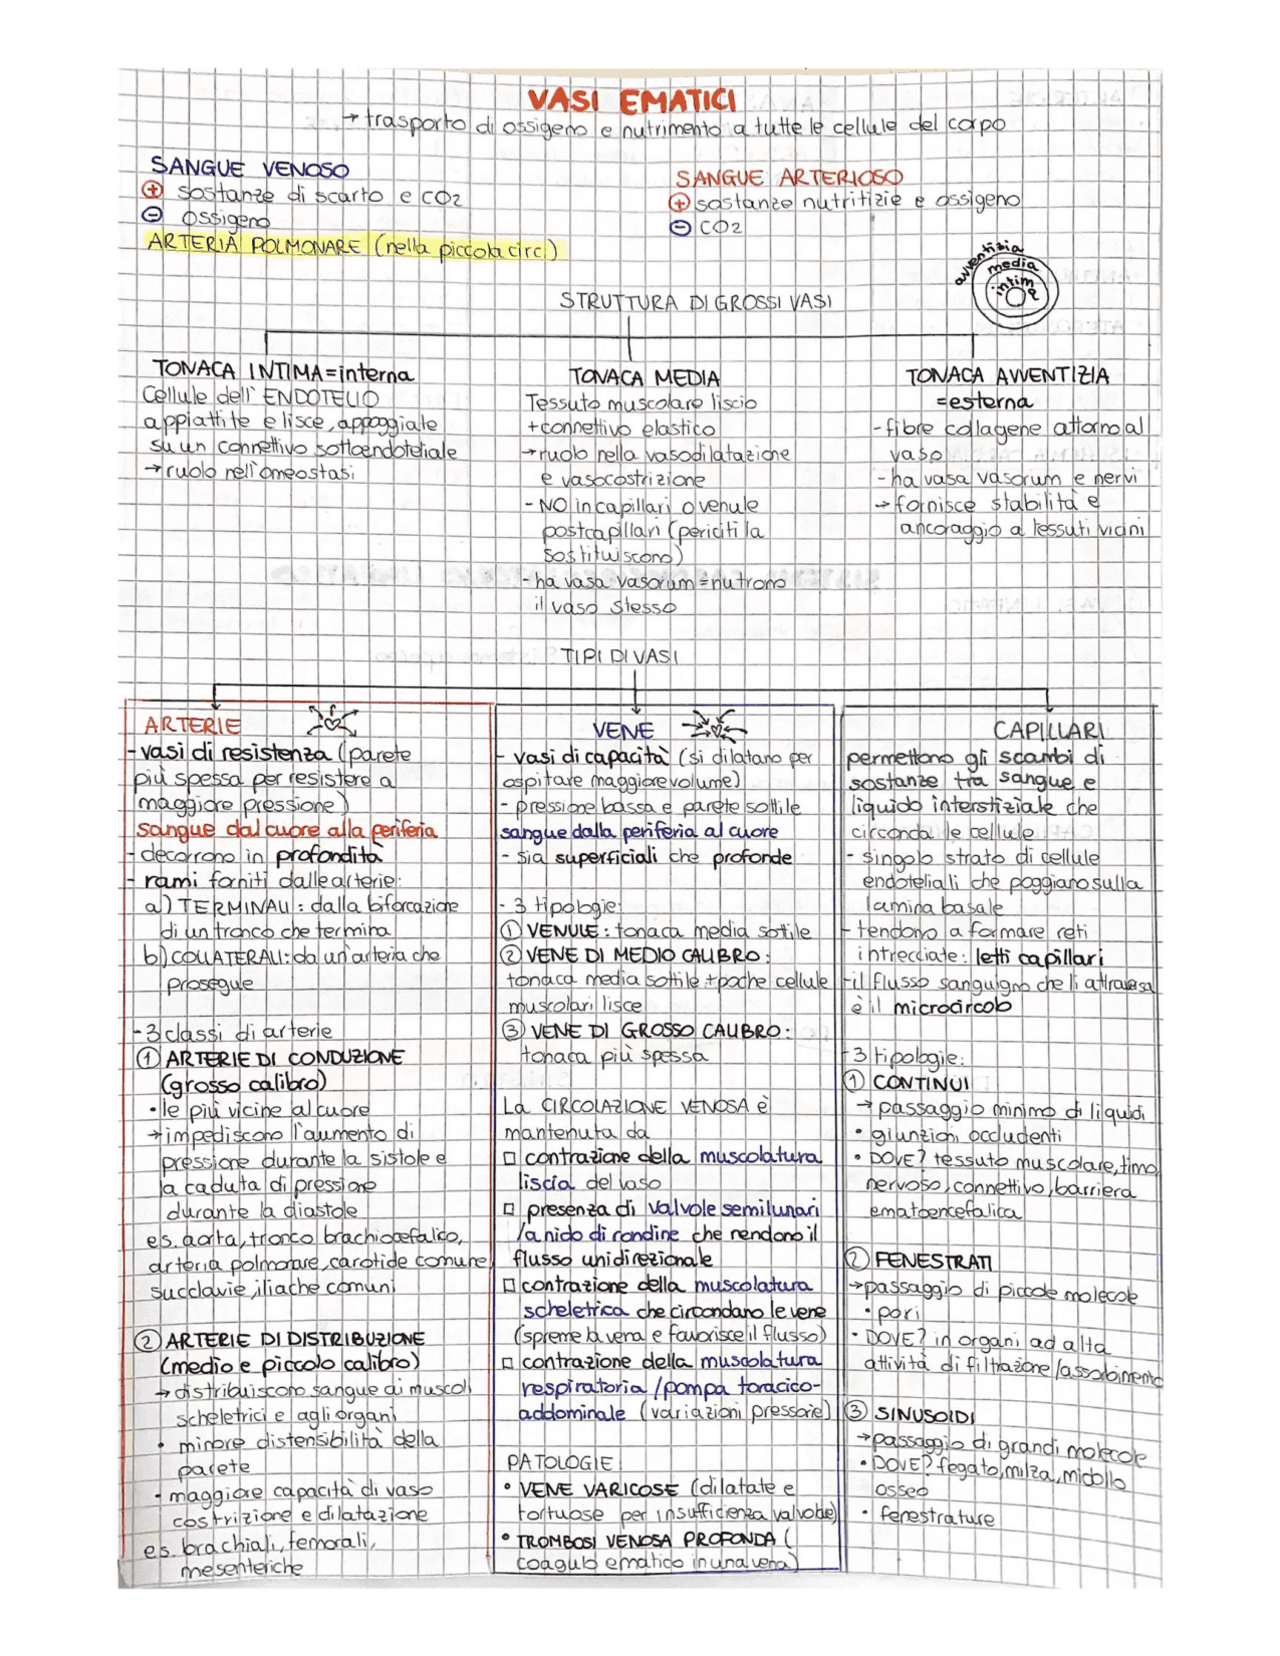 VASI EMATICI
→ trasporto di ossigeno e nutrimento a tutte le cellule del corpo
SANGUE VENOSO
⊕ sostanze di scarto e CO2
⊖ ossigeno
ARTERIA POLMONARE (nella piccola circ.)
SANGUE ARTERIOSO
⊕ sostanze nutritizie e ossigeno
⊖ CO2
avventizia
media
intima
STRUTTURA DI GROSSI VASI
TONACA INTIMA = interna
Cellule dell'ENDOTELIO
appiattite e lisce, appoggiate
su un connettivo sottoendoteliale
→ ruolo nell'omeostasi
TONACA MEDIA
Tessuto muscolare liscio
+ connettivo elastico
→ ruolo nella vasodilatazione
e vasocostrizione
- NO in capillari o venule
postcapillari (periciti la
sostituiscono)
- ha vasa vasorum = nutrono
il vaso stesso
TONACA AVVENTIZIA
= esterna
- fibre collagene attorno al
vaso
- ha vasa vasorum e nervi
→ fornisce stabilità e
ancoraggio a tessuti vicini
TIPI DI VASI
ARTERIE
- vasi di resistenza (parete
più spessa per resistere a
maggiore pressione)
sangue dal cuore alla periferia
- decorrono in profondità
- rami forniti dalle arterie:
a) TERMINALI: dalla biforcazione
di un tronco che termina
b) COLLATERALI: da un'arteria che
prosegue
- 3 classi di arterie
① ARTERIE DI CONDUZIONE
(grosso calibro)
• le più vicine al cuore
→ impediscono l'aumento di
pressione durante la sistole e
la caduta di pressione
durante la diastole
es. aorta, tronco brachiocefalico,
arteria polmonare, carotide comune
succlavie, iliache comuni
② ARTERIE DI DISTRIBUZIONE
(medio e piccolo calibro)
→ distribuiscono sangue ai muscoli
scheletrici e agli organi
• minore distensibilità della
parete
• maggiore capacità di vaso
costrizione e dilatazione
es. brachiali, femorali,
mesenteriche
VENE
- vasi di capacità (si dilatano per
ospitare maggiore volume)
- pressione bassa e parete sottile
sangue dalla periferia al cuore
- sia superficiali che profonde
- 3 tipologie:
① VENULE: tonaca media sottile
② VENE DI MEDIO CALIBRO:
tonaca media sottile + poche cellule
muscolari lisce
③ VENE DI GROSSO CALIBRO:
tonaca più spessa
La CIRCOLAZIONE VENOSA è
mantenuta da
□ contrazione della muscolatura
liscia del vaso
□ presenza di valvole semilunari
/a nido di rondine che rendono il
flusso unidirezionale
□ contrazione della muscolatura
scheletrica che circondano le vene
(spreme la vena e favorisce il flusso)
□ contrazione della muscolatura
respiratoria / pompa toracico-
addominale (variazioni pressorie)
PATOLOGIE
• VENE VARICOSE (dilatate e
tortuose per insufficienza valvole)
• TROMBOSI VENOSA PROFONDA (
coagulo ematico in una vena)
CAPILLARI
permettono gli scambi di
sostanze tra sangue e
liquido interstiziale che
circonda le cellule
- singolo strato di cellule
endoteliali che poggiano sulla
lamina basale
- tendono a formare reti
intrecciate: letti capillari
- il flusso sanguigno che li attraversa
è il microcircolo
- 3 tipologie:
① CONTINUI
→ passaggio minimo di liquidi
• giunzioni occludenti
• DOVE? tessuto muscolare, timo,
nervoso, connettivo, barriera
ematoencefalica
② FENESTRATI
→ passaggio di piccole molecole
• pori
• DOVE? in organi ad alta
attività di filtrazione / assorbimento
③ SINUSOIDI
→ passaggio di grandi molecole
• DOVE? fegato, milza, midollo
osseo
• fenestrature